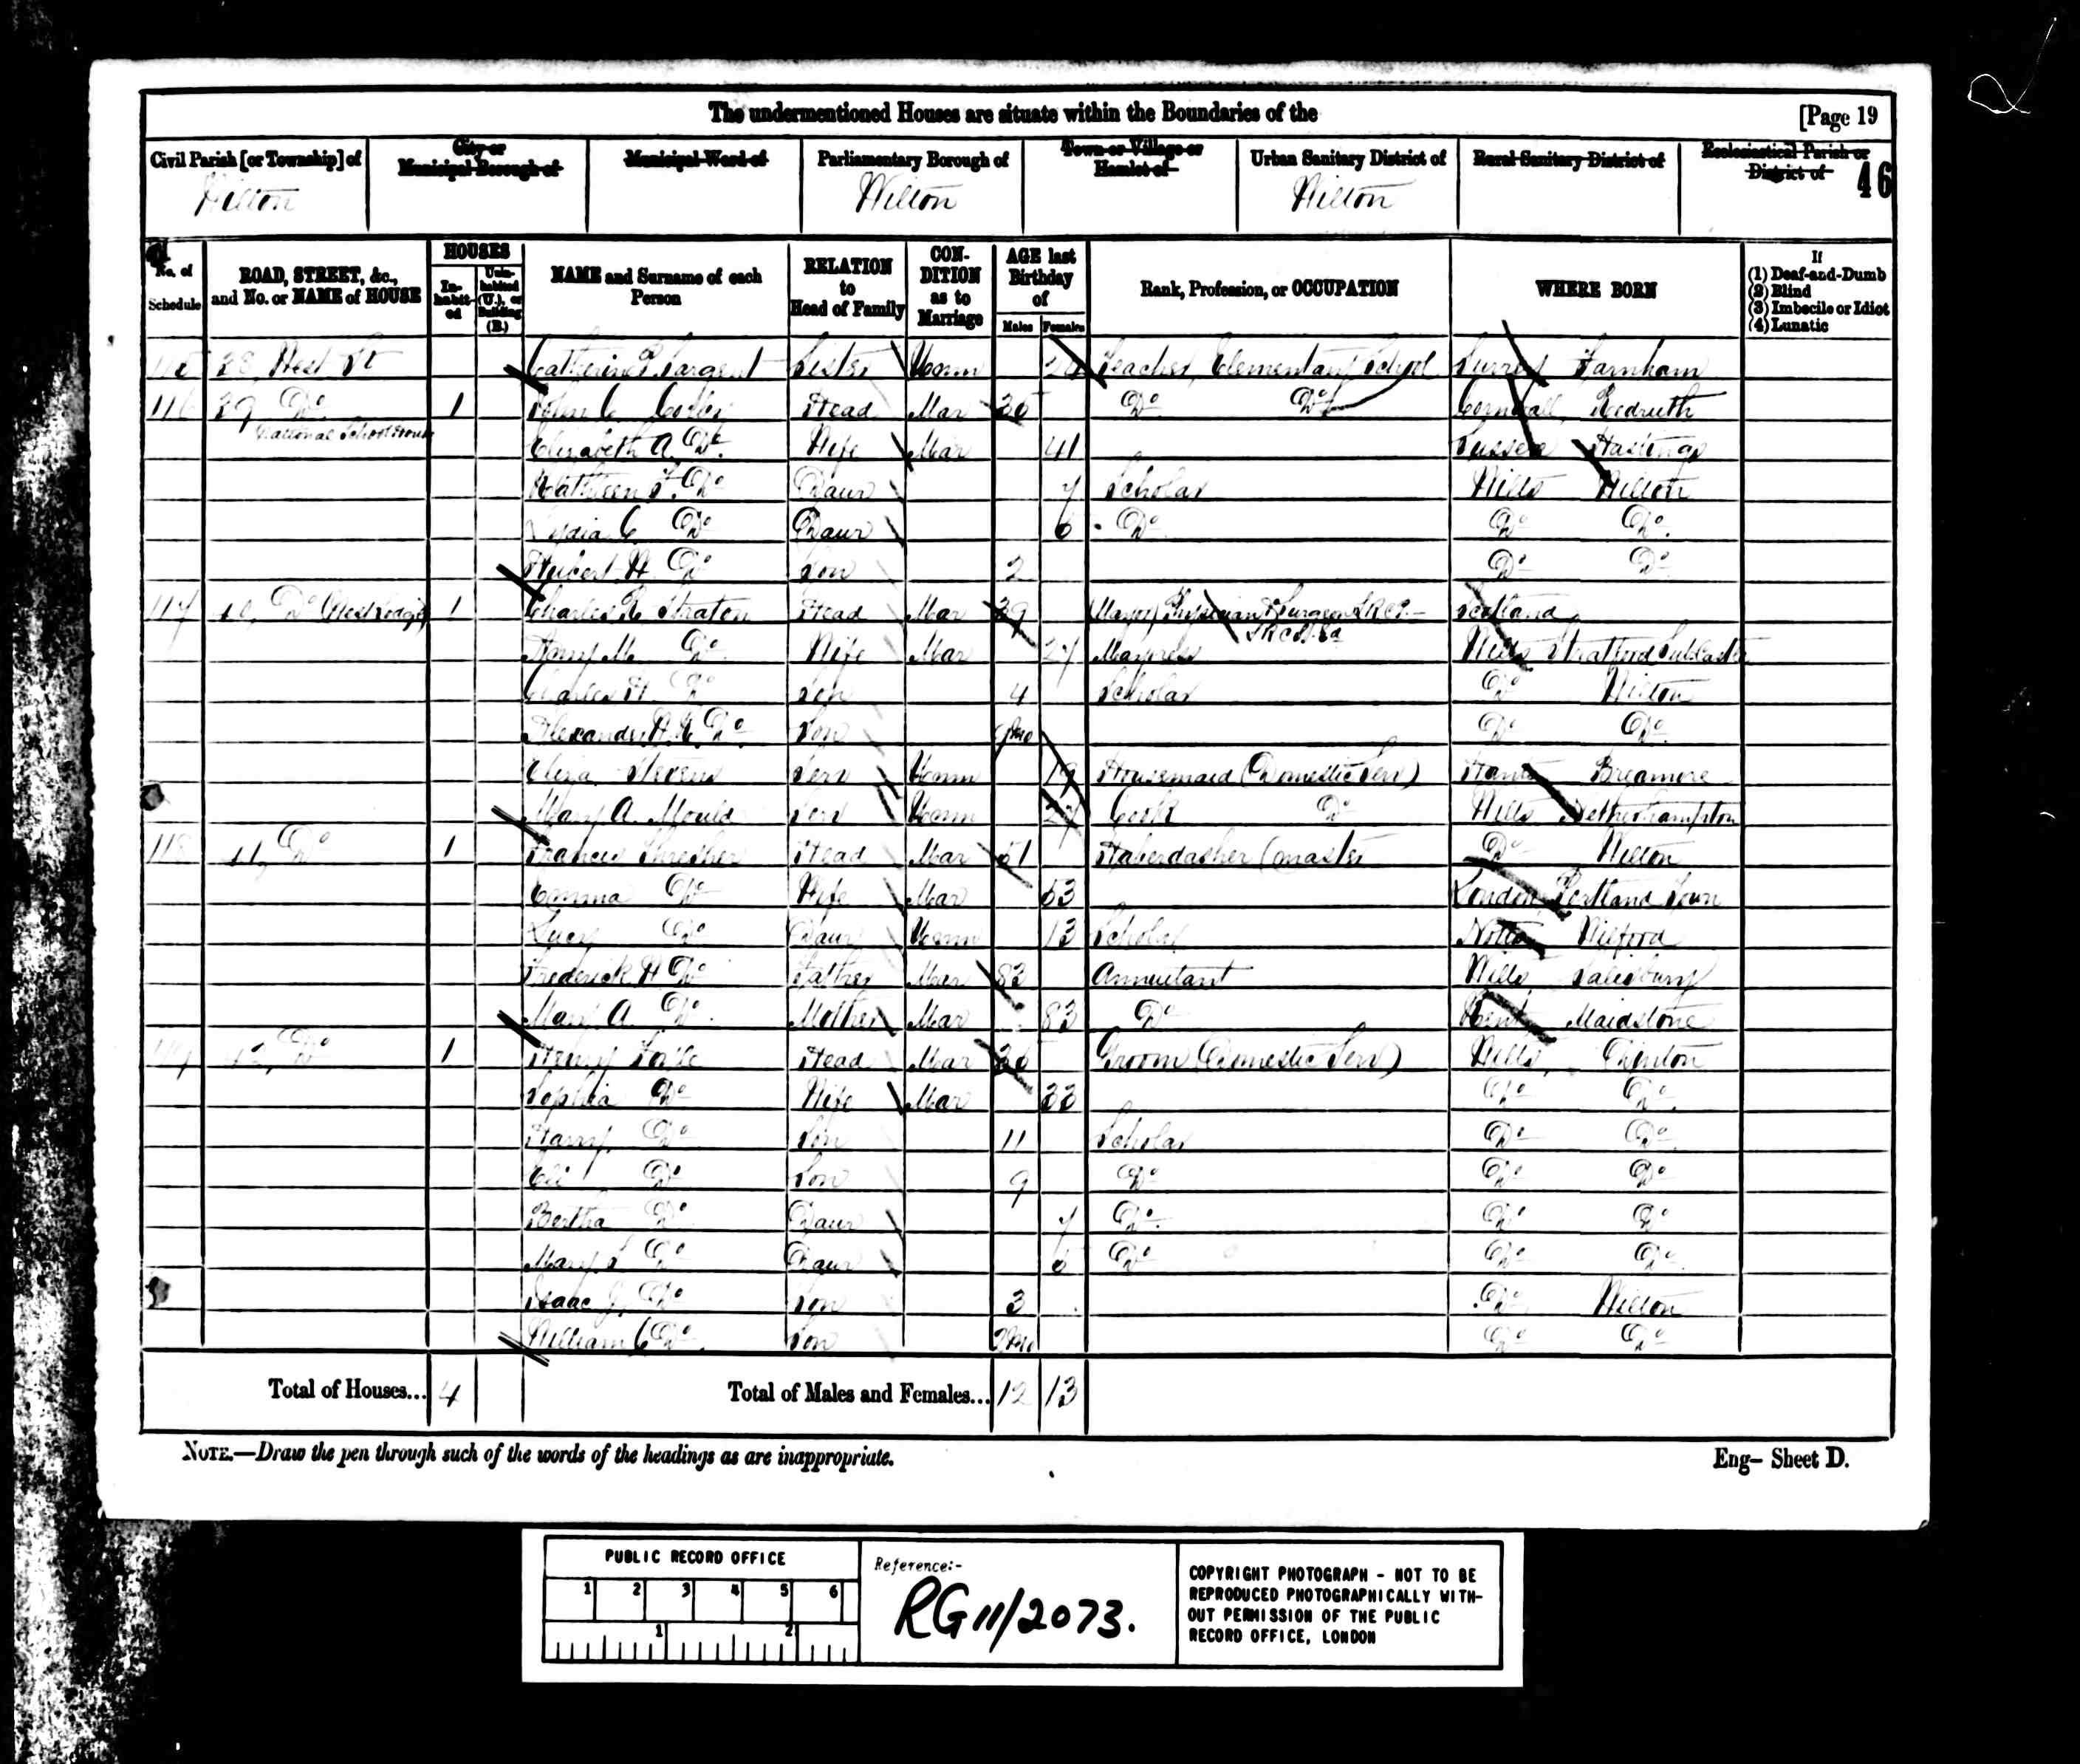 The undermentioned Houses are situate within the Boundaries of the [Page 19
Civil Parish [or Township] of City or Municipal Borough of Municipal Ward of Parliamentary Borough of Town or Village or Hamlet of Urban Sanitary District of Rural Sanitary District of Ecclesiastical Parish or District of 46
Wilton Wilton Wilton
No. of Schedule ROAD, STREET, &c., and No. or NAME of HOUSE HOUSES Inhabited Uninhabited (U.), or Building (B.) NAME and Surname of each Person RELATION to Head of Family CONDITION as to Marriage AGE last Birthday of Males Females Rank, Profession, or OCCUPATION WHERE BORN If (1) Deaf-and-Dumb (2) Blind (3) Imbecile or Idiot (4) Lunatic
38, West St Sargent Sister Unm Teacher, Elementary School Surrey Farnham
116 39 Do 1 Head Mar Do Do Cornwall Redruth
National School House Elizabeth A. Do Wife Mar 41 Sussex Hastings
Kathleen Do Daur 7 Scholar Wilts Wilton
Lydia C Do Daur 6 Do Do Do
Do Son 2 Do Do
117 40, Do West Lodge 1 Charles R. Straton Head Mar 39 (Mayor) Physician & Surgeon Scotland
M. Do Wife Mar 27 Mayoress Wilts Stratford Subcastle
Charles H. Do Son 4 Scholar Do Wilton
Alexander Do Son Do Do
Eliza Stevens Serv Unm 19 Housemaid (Domestic Serv) Hants Breamore
Mary A. Mould Serv Unm 27 Cook Do Wilts Netherhampton
118 41, Do 1 Francis Head Mar 51 Haberdasher (master Do Wilton
Emma Do Wife Mar 53 London Portland Town
Lucy Do Daur Unm 13 Scholar Notts Wilford
Frederick H Do Father Mar 83 Annuitant Wilts Salisbury
Mary A. Do Mother Mar 83 Do Kent Maidstone
119 42, Do 1 Henry Head Mar 36 Groom (Domestic Serv) Wilts Dinton
Sophia Do Wife Mar 33 Do Do
Harry Do Son 11 Scholar Do Do
Eli Do Son 9 Do Do Do
Bertha Do Daur 7 Do Do Do
Mary Do Daur Do Do Do
Isaac J. Do Son 3 Do Wilton
William C Do Son 2mo Do Do
Total of Houses... 4 Total of Males and Females... 12 13
NOTE.—Draw the pen through such of the words of the headings as are inappropriate. Eng– Sheet D.
PUBLIC RECORD OFFICE
1 2 3 4 5 6
1 2
Reference:-
RG 11/2073.
COPYRIGHT PHOTOGRAPH - NOT TO BE
REPRODUCED PHOTOGRAPHICALLY WITH-
OUT PERMISSION OF THE PUBLIC
RECORD OFFICE, LONDON